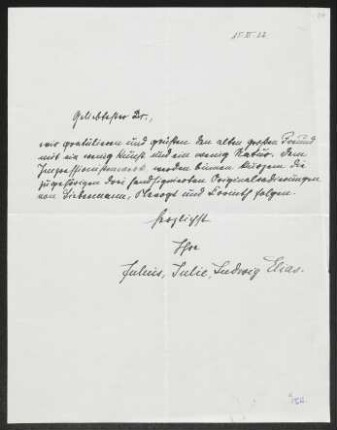 15.XI.22
Geliebtester Dr.,
wir gratulieren und grüßen den alten großen Freund
mit ein wenig Kunst und ein wenig Natur. Dem
Impressionistenwerk werden binnen kurzem die
zugehörigen drei handsignierten Originalradierungen
von Liebermann, Slevogt und Corinth folgen.
Herzlichst
Ihre
Julius, Julie, Ludwig Elias.